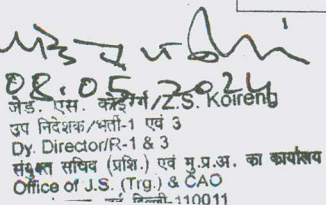 08.05.2024
जेड. एस. कोइरेंग/Z.S. Koireng
उप निदेशक/भर्ती-1 एवं 3
Dy. Director/R-1 & 3
संयुक्त सचिव (प्रशि.) एवं मु.प्र.अ. का कार्यालय
Office of J.S. (Trg.) & CAO
नई दिल्ली-110011